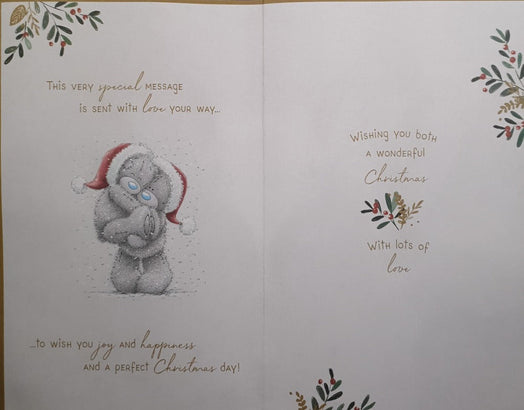 This very special message
is sent with love your way...
...to wish you joy and happiness
and a perfect Christmas day!
Wishing you both
a wonderful
Christmas
With lots of
love